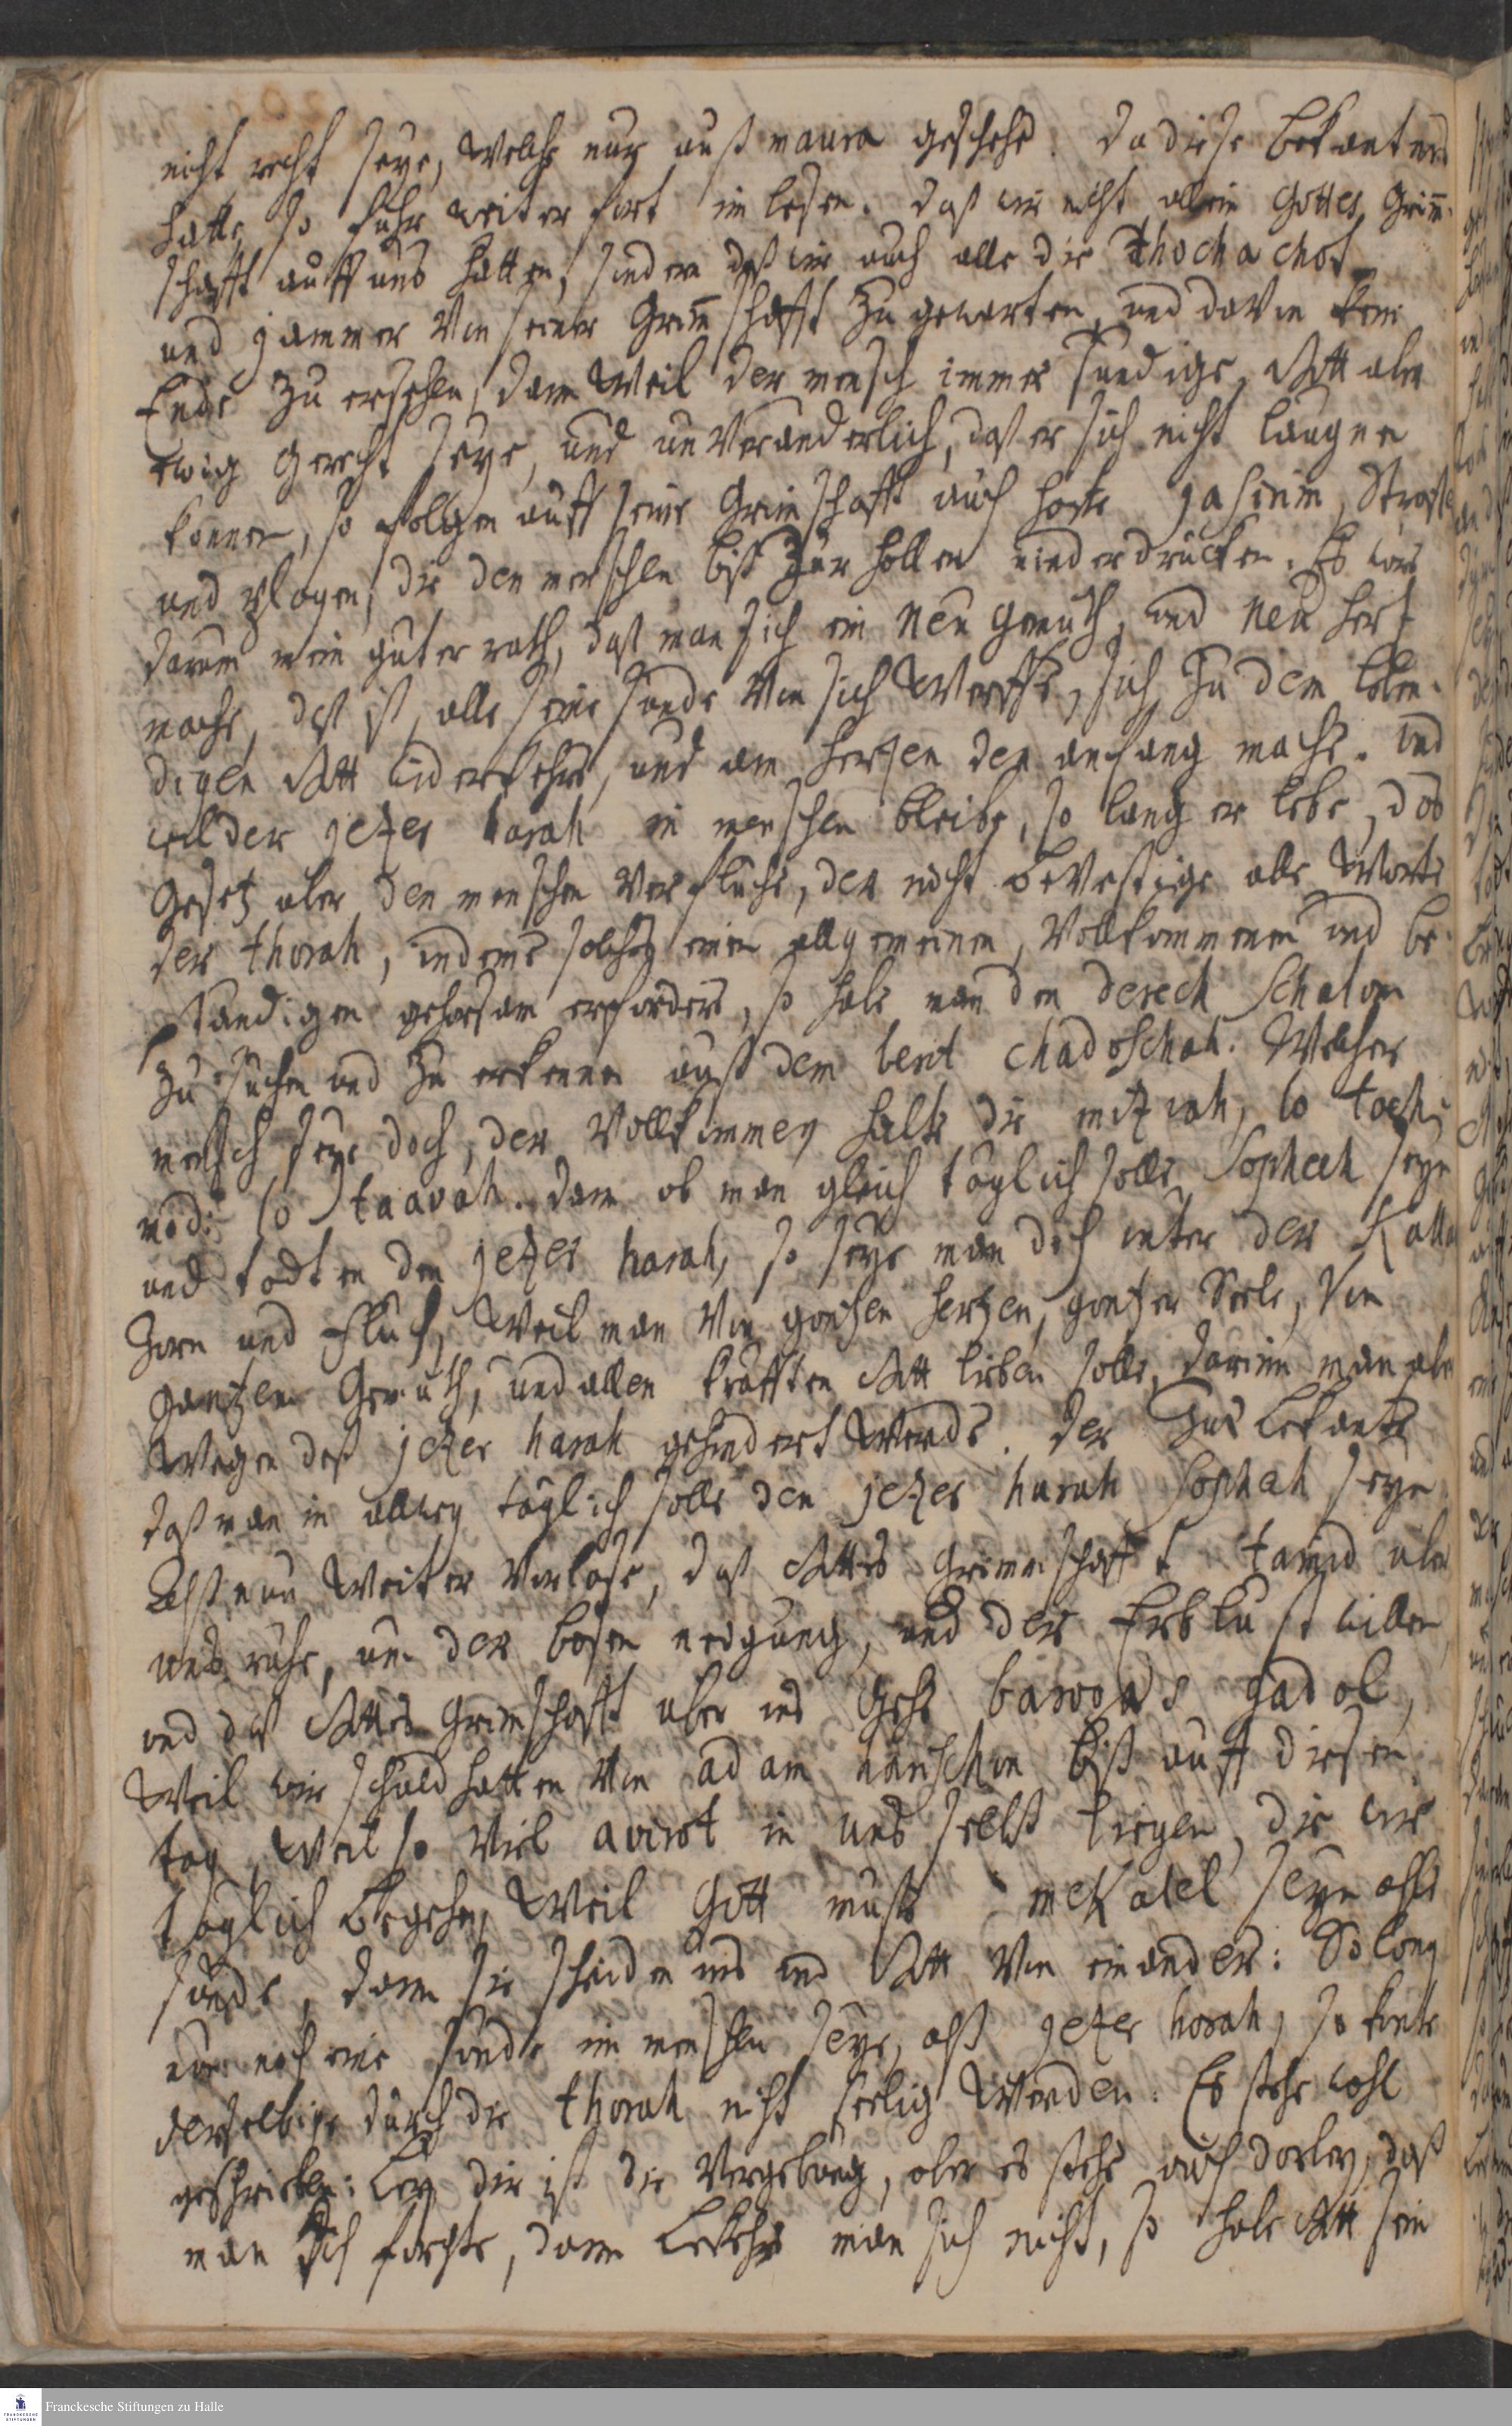 nicht recht seye, welche nur auß maura geschehe. Da diese bekanten
hatte, so fuhr weiter fort im lesen. daß wir nicht allein Gottes Grim̅-
schafft auff uns hatten, sondern daß wir auch alle die thochachot
und jammer von seiner Grim̅schafft zu gewarten, und davon kein
Ende zu ersehen, dann weil der mensch immer sundige, Gott aber
ewig gerecht seye, und unveranderlich, daß er sich nicht laugnen
konnen, so folgen auff seine Grimschafft auch harte jasirim, Straffe
und plagen, die den menschen biß zur hollen niederdrucken. Es ware
darum mein guter rath, daß man sich ein neu gemuth, und neu hertz
mache, daß ist, alle seine sunde von sich werffe, sich zu dem leben-
digen Gott widerkehre, und am hertzen den anfang mache. Und
weil der jetzer harah im menschen bleibe, so lang er lebe, das
Gesetz aber den menschen verfluche, der nicht bevestige alle worte
der thorah, indeme solches einen allgemeinen, vollkommenen und be-
standigen gehorsam erfordere, so habe man den derech schalom
zu suchen und zu erkennen auß dem berit chadoschah. Welcher
mensch seye doch, der vollkommen halte die mitzwah, lo tach-
mod: lo titaavah. dann ob man gleich täglich solle Sopheh seyn
und todten den jetzer harah, so seye man doch unter der Kalla
Zorn und Fluch, weil man von gantzen hertzen, gantzer Seele, von
gantzem Gemuth, und allen kräfften Gott lieben solle, darinn man aber
wegen deß jetzer harah gehindert werde. der Jud bekante
daß man in allweg täglich solle den jetzer harah Sophah seyn
Alß nun weiter vorlase, daß Gottes Grimmschafft tamid uber
uns ruhe, um der bosen neigung, und der Erblust willen,
und daß Gottes Grimschafft uber uns gehe bawoas gadol,
weil wir schuld hatten von adam harischon biß auff diesen
tag, weil so viel avirot in uns selbst liegen, die wir
täglich begehen, weil Gott muste mekatel seyn alle
sunde, dann sie scheiden uns und Gott von einander: So lang
nun noch eine sunde im menschen seye, alß jetzer harah, so konte
derselbige durch die thorah nicht seelig werden. Es stehe wohl
geschrieben: bey dir ist die Vergebung, aber es stehe auch darbey, daß
man dich forchte, dann bekehre man sich nicht, so habe Gott sein
Franckesche Stiftungen zu Halle